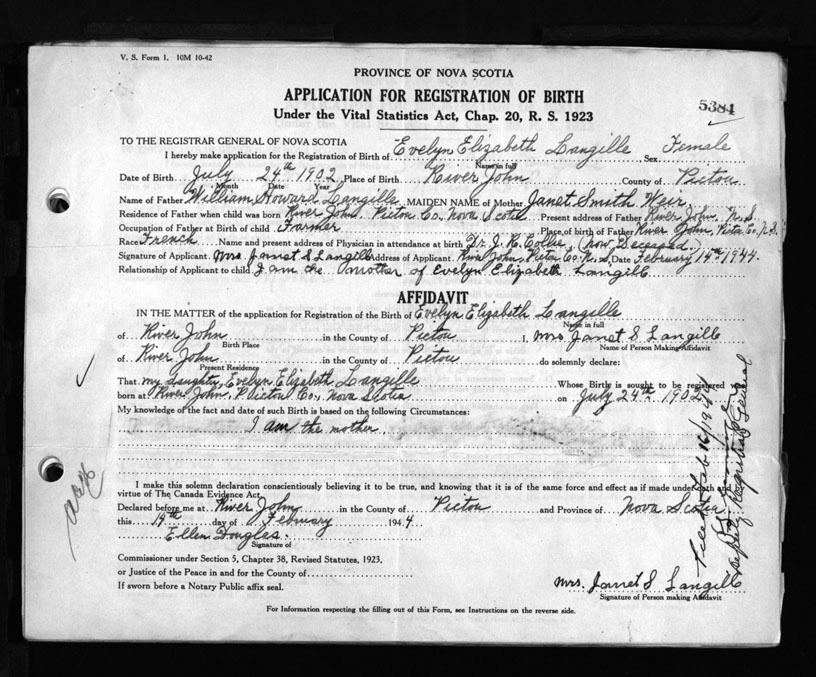 V. S. Form 1. 10M 10-42
PROVINCE OF NOVA SCOTIA
APPLICATION FOR REGISTRATION OF BIRTH
5384
Under the Vital Statistics Act, Chap. 20, R. S. 1923
TO THE REGISTRAR GENERAL OF NOVA SCOTIA
I hereby make application for the Registration of Birth of Evelyn Elizabeth Langille, Sex Female
Name in full
Date of Birth July 24th 1902 Place of Birth River John County of Pictou
Month Date Year
Name of Father William Howard Langille MAIDEN NAME of Mother Janet Smith Weir
Residence of Father when child was born River John. Pictou Co. Nova Scotia Present address of Father River John. N.S.
Occupation of Father at Birth of child Farmer Place of birth of Father River John, Pictou Co. N.S.
Race French Name and present address of Physician in attendance at birth Dr. J. R. Collie, (now Deceased.
Signature of Applicant. Mrs Janet S Langille Address of Applicant. River John, Pictou Co. N. S. Date February 14th 1944.
Relationship of Applicant to child I am the mother of Evelyn Elizabeth Langill.
AFFIDAVIT
IN THE MATTER of the application for Registration of the Birth of Evelyn Elizabeth Langille
Name in full
of River John in the County of Pictou I, Mrs Janet S Langill
Birth Place Name of Person Making Affidavit
of River John in the County of Pictou do solemnly declare:
Present Residence
That my daughty, Evelyn Elizabeth Langille Whose Birth is sought to be registered was
born at River John, Pictou Co., Nova Scotia on July 24th 1902
My knowledge of the fact and date of such Birth is based on the following Circumstances:
I am the mother.
I make this solemn declaration conscientiously believing it to be true, and knowing that it is of the same force and effect as if made under oath and by
virtue of The Canada Evidence Act.
Declared before me at River John in the County of Pictou and Province of Nova Scotia
this 14th day of February 1944
Ellen Douglas.
Signature of
Commissioner under Section 5, Chapter 38, Revised Statutes, 1923,
or Justice of the Peace in and for the County of
If sworn before a Notary Public affix seal.
Mrs. Janet S Langill
Signature of Person making Affidavit
For Information respecting the filling out of this Form, see Instructions on the reverse side.
Filed Feb 16/1944
Deputy Registrar General